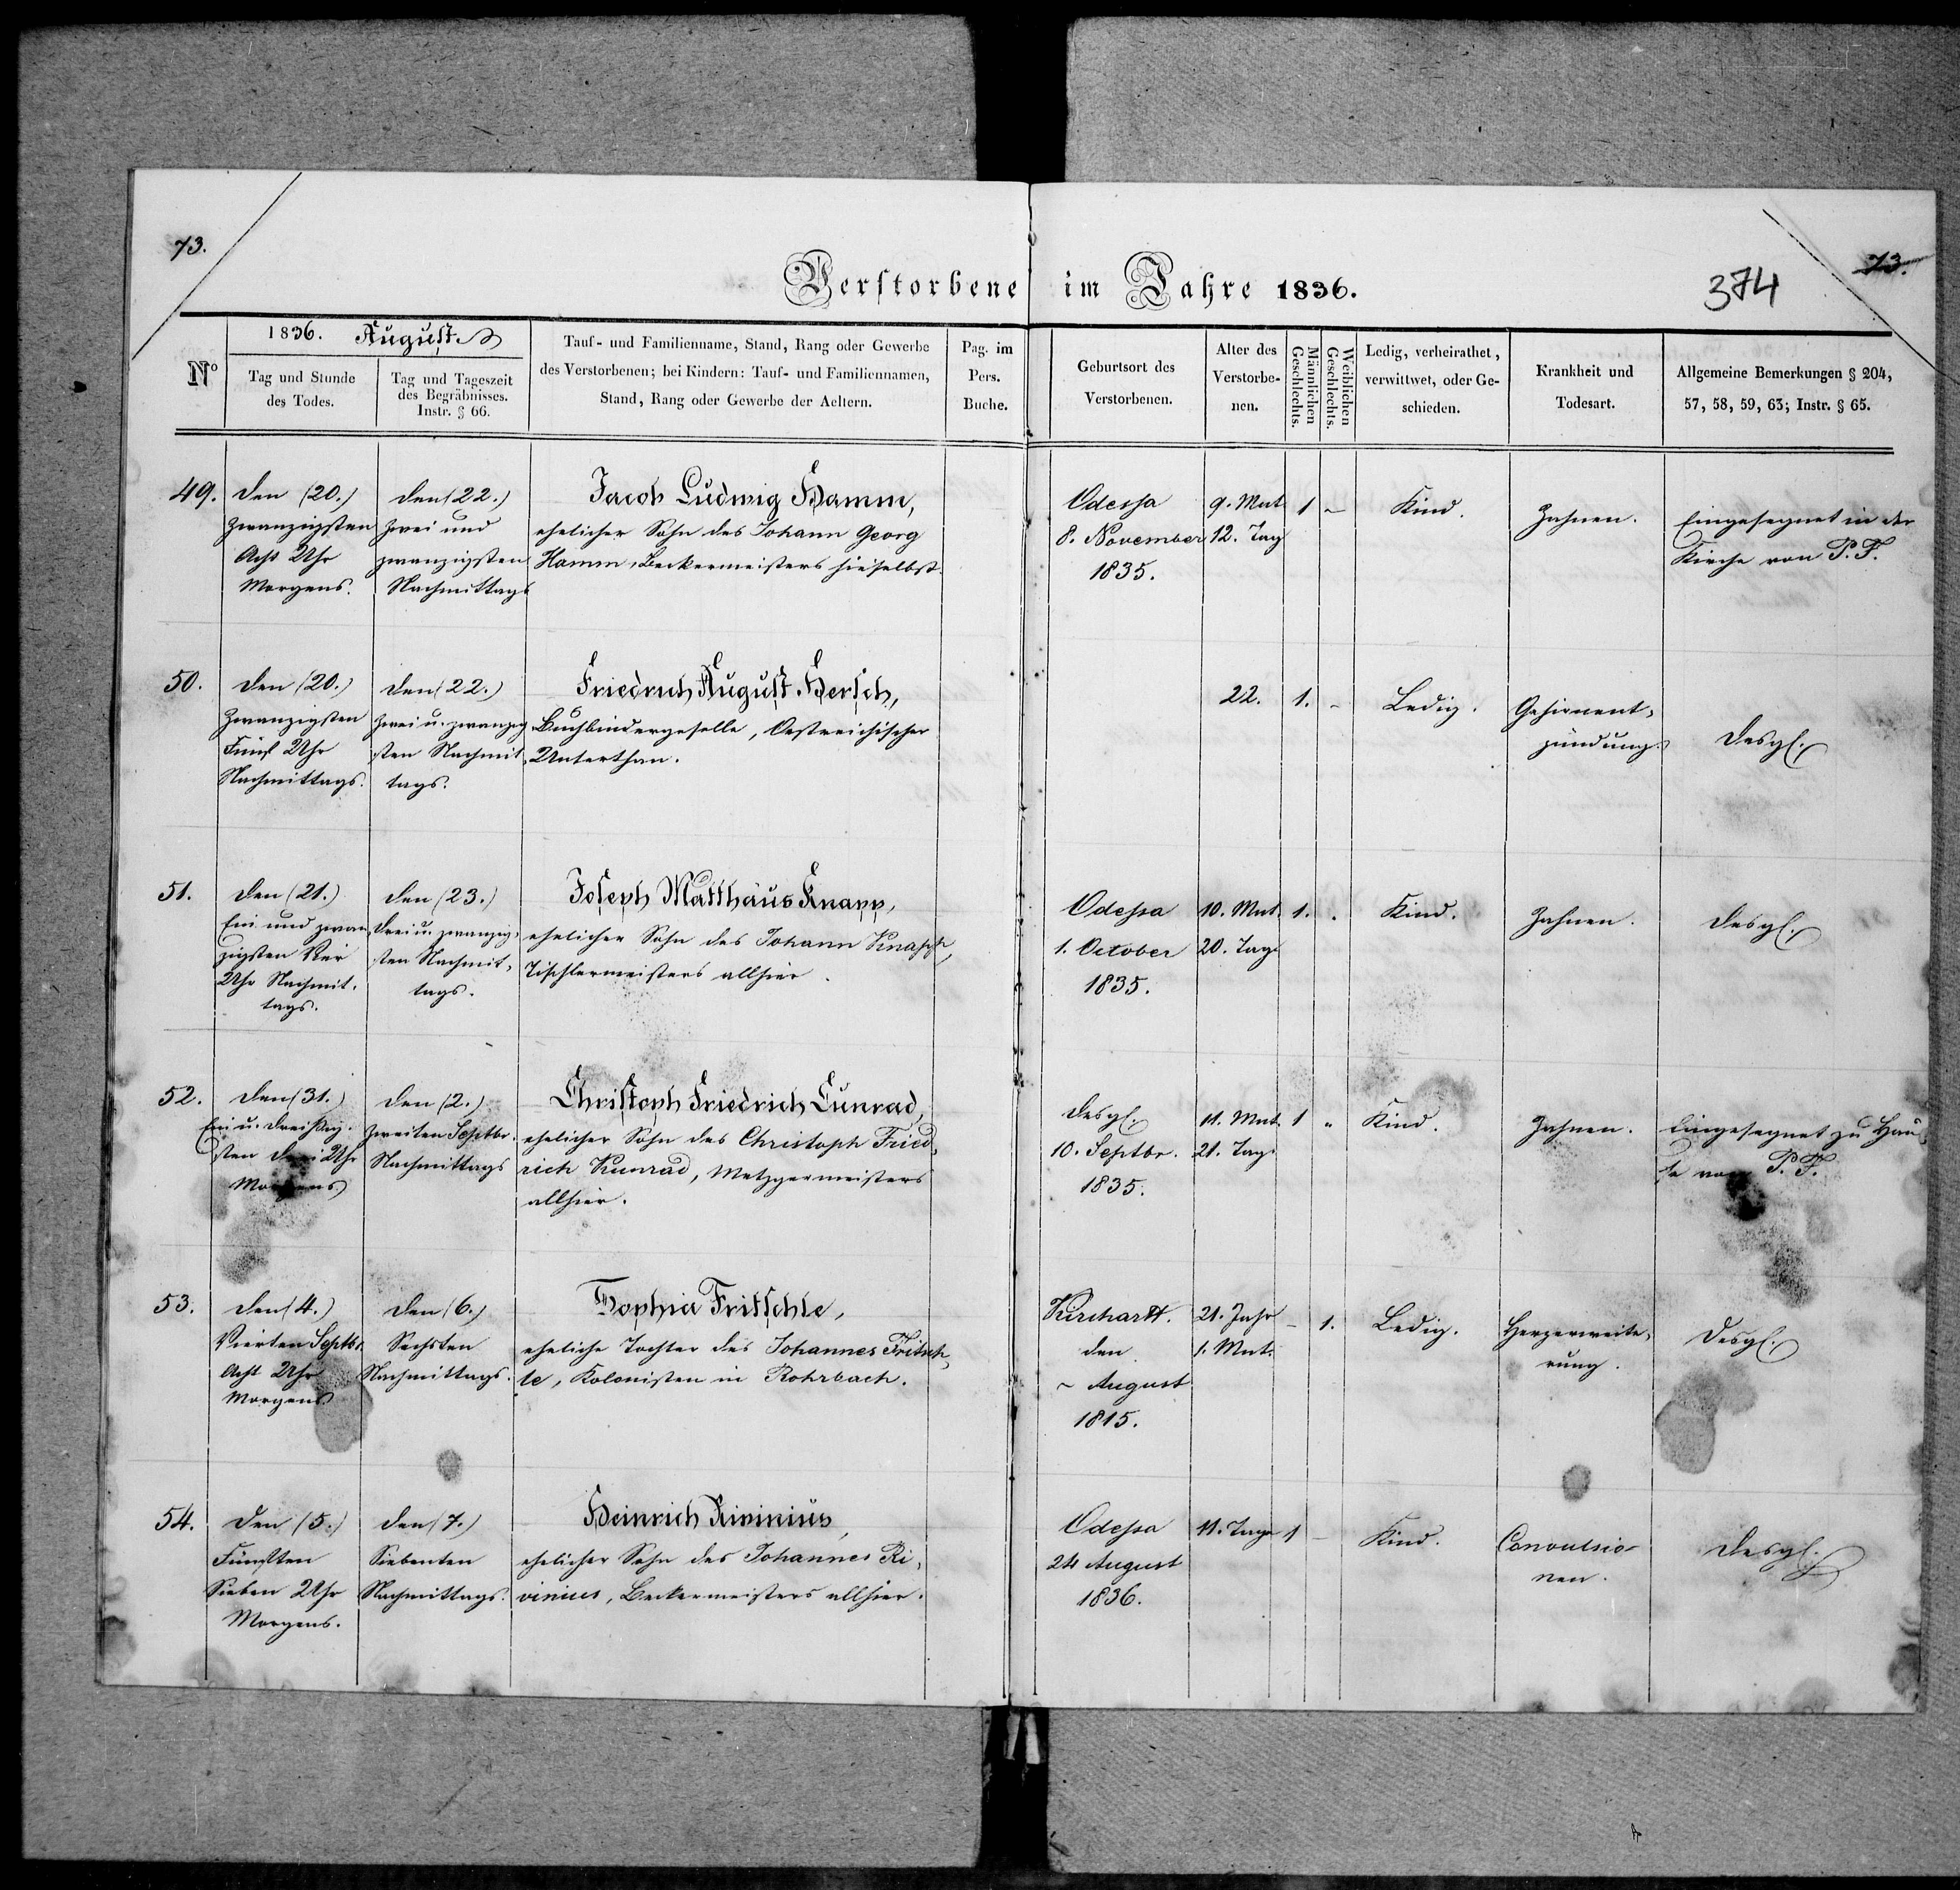 73.
73.
374
Verstorbene im Jahre 1836.
No
1836. August
Tag und Stunde
des Todes.
Tag und Tageszeit
des Begräbnisses.
Instr. § 66.
Tauf- und Familienname, Stand, Rang oder Gewerbe
des Verstorbenen; bei Kindern: Tauf- und Familiennamen,
Stand, Rang oder Gewerbe der Aeltern.
Pag. im
Pers.
Buche.
Geburtsort des
Verstorbenen.
Alter des
Verstorbe-
nen.
Männlichen
Geschlechts.
Weiblichen
Geschlechts.
Ledig, verheirathet,
verwittwet, oder Ge-
schieden.
Krankheit und
Todesart.
Allgemeine Bemerkungen § 204,
57, 58, 59, 63; Instr. § 65.
49.
den (20.)
zwanzigsten
Acht Uhr
Morgens.
den (22.)
zwei und
zwanzigsten
Nachmittags
Jacob Ludwig Hamm,
ehelicher Sohn des Johann Georg
Hamm, Beckermeisters hieselbst.
Odessa
8. November
1835.
9. Mnt
12. Tag
1
-
Kind.
Zahnen.
Eingesegnet in der
Kirche von P. F.
50.
den (20.)
Zwanzigsten
Fünf Uhr
Nachmittags.
den (22.)
zwei u. zwanzig
sten Nachmit,
tags.
Friedrich August Hersch,
Buchbindergeselle, Oestreichischer
Unterthan.
22.
1.
-
Ledig.
Gehirnent,
zündung.
desgl.
51.
den (21.)
Ein und zwan,
zigsten Vier
Uhr Nachmit.
tags.
den (23.)
drei u. zwanzig,
sten Nachmit,
tags.
Joseph Matthäus Knapp,
ehelicher Sohn des Johann Knapp,
Tischlermeisters allhier.
Odessa
1. October
1835.
10. Mnt.
20. Tag
1.
Kind.
Zahnen.
desgl.
52.
den (31.)
Ein u. dreißig.
sten Uhr
Morgens
den (2.)
zweiten Septbr.
Nachmittags
Christoph Friedrich Cunrad,
ehelicher Sohn des Christoph Fried,
rich Kunrad, Metzgermeisters
allhier.
desgl.
10. Septbr.
1835.
11. Mnt.
21. Tag.
1
"
Kind.
Zahnen.
Eingesegnet zu Hau,
se von P. F.
53.
den (4.)
Vierten Septbr
Acht Uhr
Morgens
den (6.)
Sechsten
Nachmittags.
Sophia Fritschle,
eheliche Tochter des Johannes Fritsch,
le, Kolonisten in Rohrbach.
Kirchartt.
den
~ August
1815.
21. Jahr
1. Mnt.
-
1.
Ledig.
Herzerweite,
rung.
desgl.
54.
den (5.)
Fünften
Sieben Uhr
Morgens.
den (7.)
Siebenten
Nachmittags.
Heinrich Rivinius,
ehelicher Sohn des Johannes Ri,
vinius, Beckermeisters allhier.
Odessa
24 August
1836.
11. Tage
1
-
Kind.
Convulsio-
nen.
desgl.